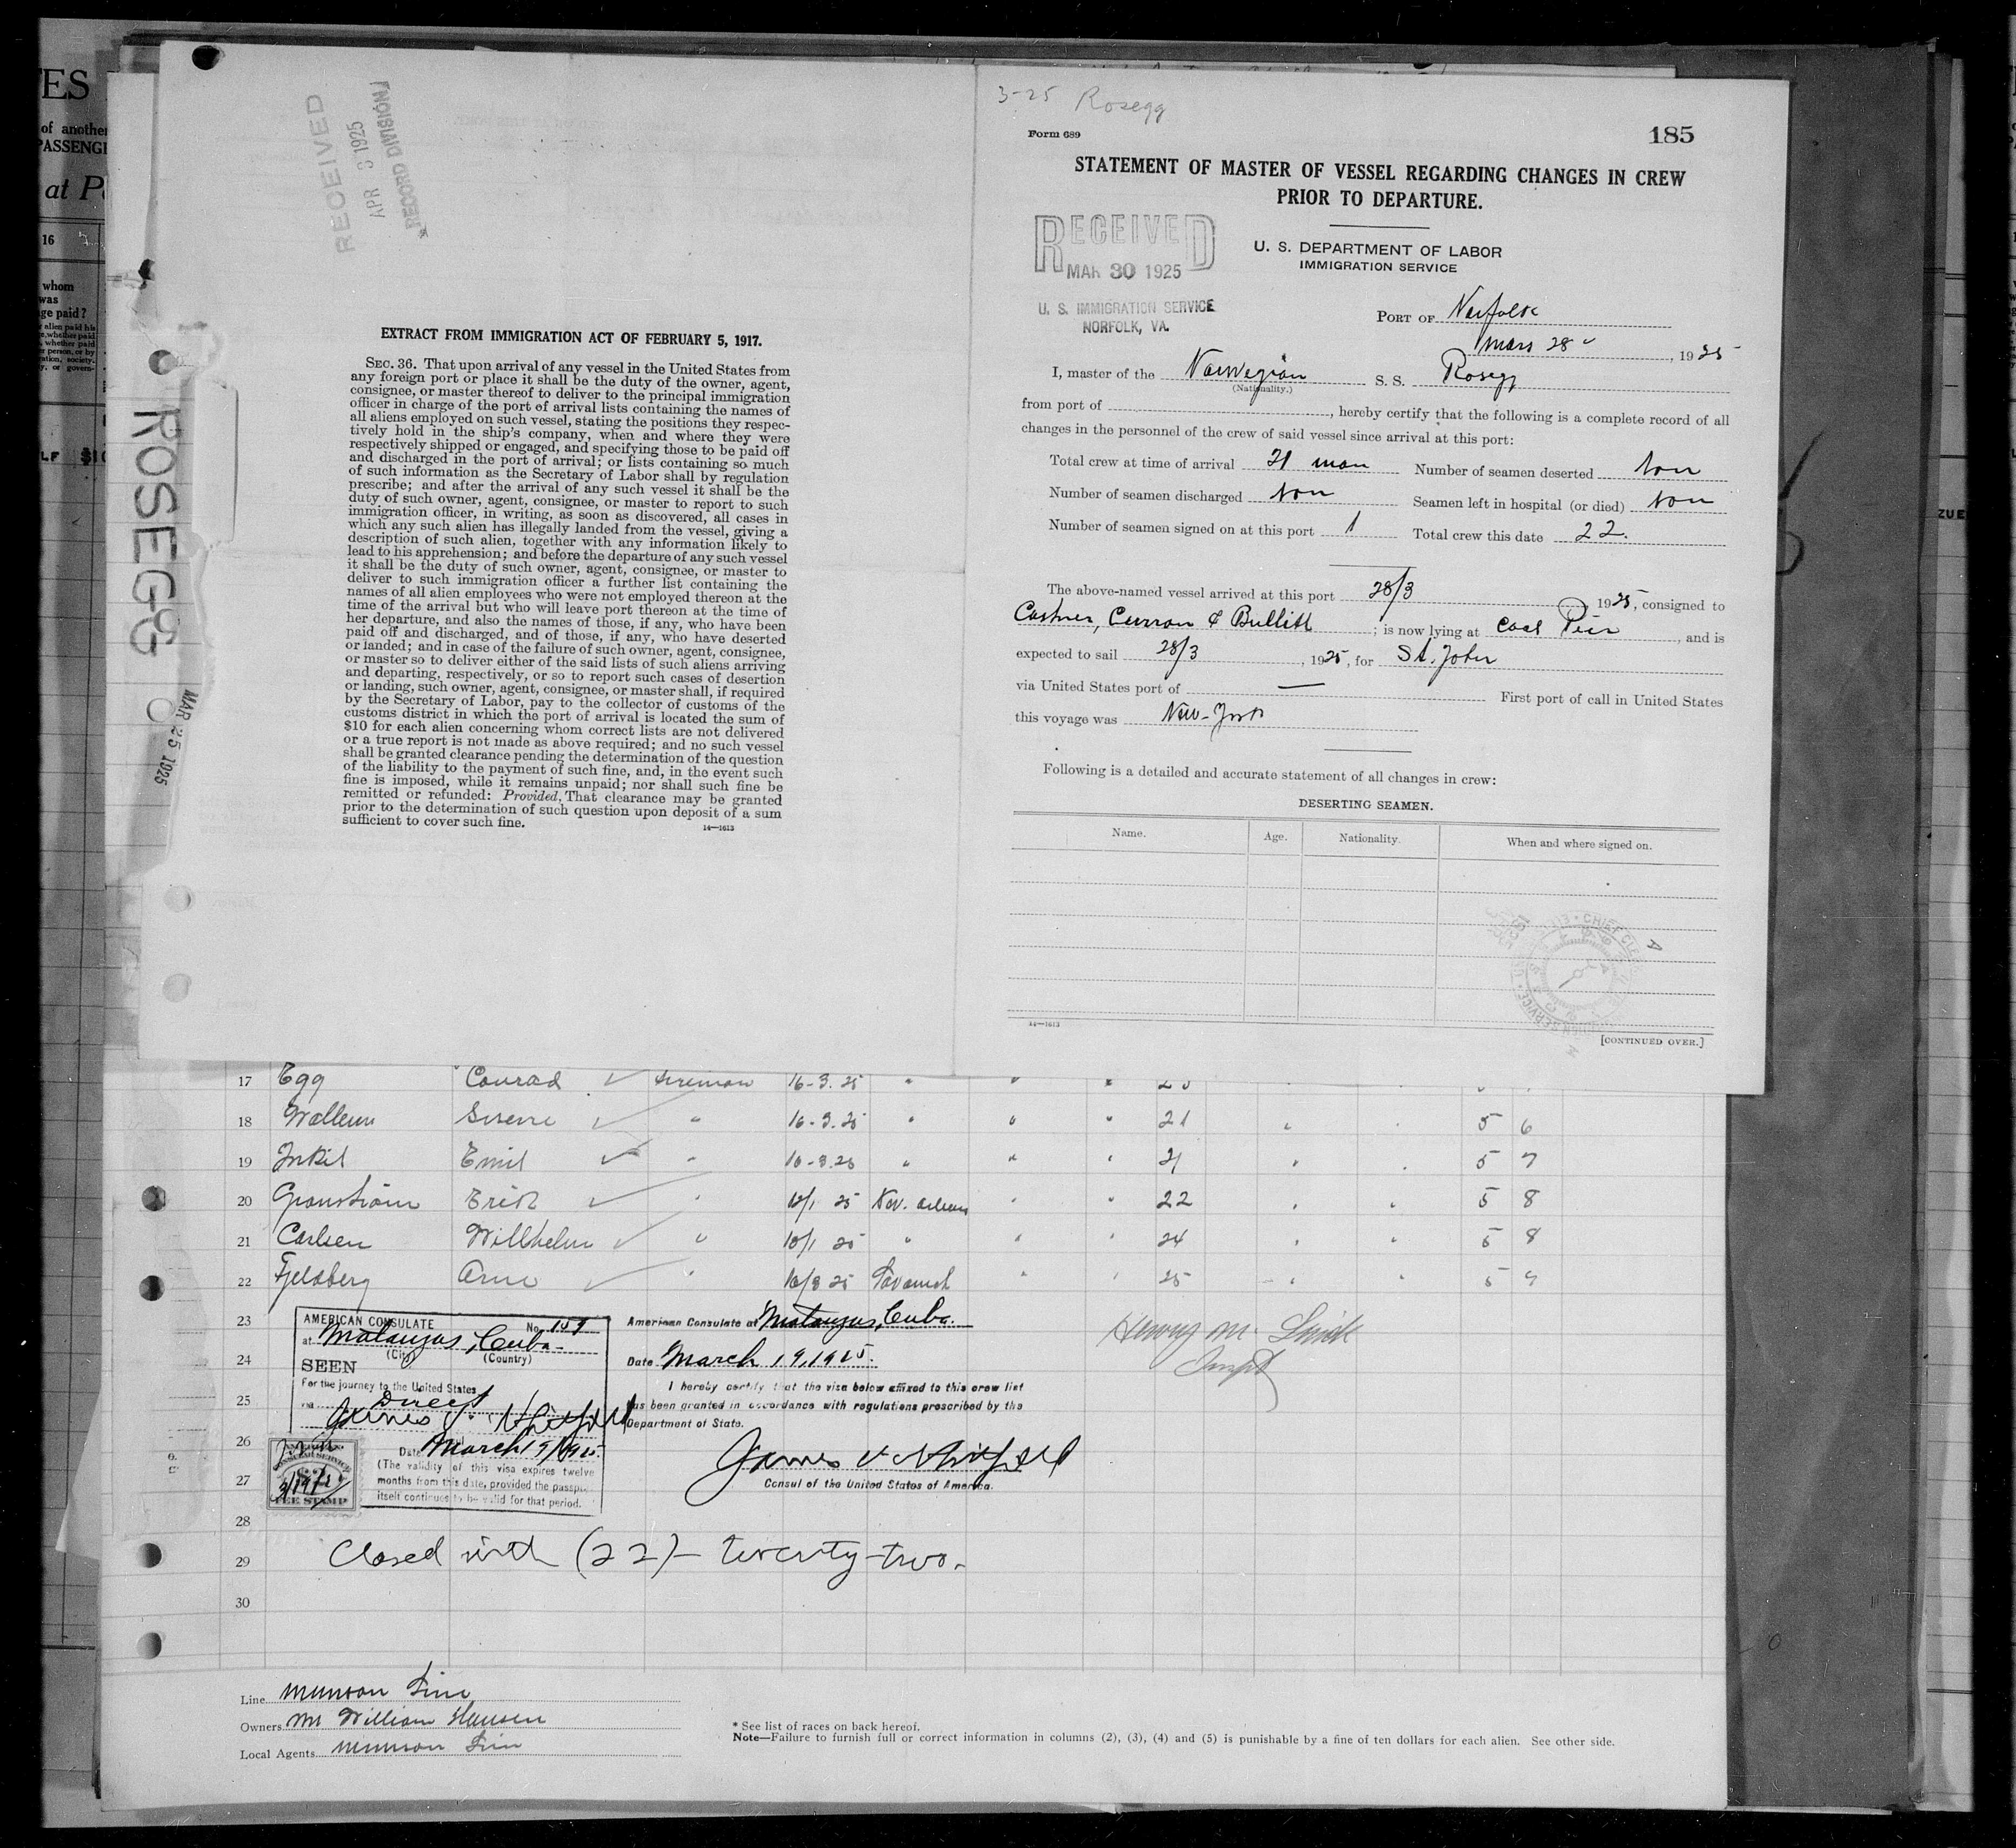 ES
of another
PASSENGE
at P
16
whom
was
ge paid?
ROSEGG
MAR 25 1925
RECEIVED
APR 3 1925
RECORD DIVISION
EXTRACT FROM IMMIGRATION ACT OF FEBRUARY 5, 1917.
SEC. 36. That upon arrival of any vessel in the United States from
any foreign port or place it shall be the duty of the owner, agent,
consignee, or master thereof to deliver to the principal immigration
officer in charge of the port of arrival lists containing the names of
all aliens employed on such vessel, stating the positions they respec-
tively hold in the ship's company, when and where they were
respectively shipped or engaged, and specifying those to be paid off
and discharged in the port of arrival; or lists containing so much
of such information as the Secretary of Labor shall by regulation
prescribe; and after the arrival of any such vessel it shall be the
duty of such owner, agent, consignee, or master to report to such
immigration officer, in writing, as soon as discovered, all cases in
which any such alien has illegally landed from the vessel, giving a
description of such alien, together with any information likely to
lead to his apprehension; and before the departure of any such vessel
it shall be the duty of such owner, agent, consignee, or master to
deliver to such immigration officer a further list containing the
names of all alien employees who were not employed thereon at the
time of the arrival but who will leave port thereon at the time of
her departure, and also the names of those, if any, who have been
paid off and discharged, and of those, if any, who have deserted
or landed; and in case of the failure of such owner, agent, consignee,
or master so to deliver either of the said lists of such aliens arriving
and departing, respectively, or so to report such cases of desertion
or landing, such owner, agent, consignee, or master shall, if required
by the Secretary of Labor, pay to the collector of customs of the
customs district in which the port of arrival is located the sum of
$10 for each alien concerning whom correct lists are not delivered
or a true report is not made as above required; and no such vessel
shall be granted clearance pending the determination of the question
of the liability to the payment of such fine, and, in the event such
fine is imposed, while it remains unpaid; nor shall such fine be
remitted or refunded: Provided, That clearance may be granted
prior to the determination of such question upon deposit of a sum
sufficient to cover such fine. 14—1613
3-25 Rosegg
Form 689
185
STATEMENT OF MASTER OF VESSEL REGARDING CHANGES IN CREW
PRIOR TO DEPARTURE.
RECEIVED
MAR 30 1925
U. S. IMMIGRATION SERVICE
NORFOLK, VA.
U. S. DEPARTMENT OF LABOR
IMMIGRATION SERVICE
PORT OF Norfolk
Mars 28, 1925
I, master of the Norwegian S. S. Rosegg
(Nationality.)
from port of , hereby certify that the following is a complete record of all
changes in the personnel of the crew of said vessel since arrival at this port:
Total crew at time of arrival 21 man Number of seamen deserted Non
Number of seamen discharged Non Seamen left in hospital (or died) Non
Number of seamen signed on at this port 1 Total crew this date 22.
The above-named vessel arrived at this port 28/3 1925, consigned to
Castner, Curran & Bullitt ; is now lying at Coal Pier, and is
expected to sail 28/3, 1925, for St. John
via United States port of — First port of call in United States
this voyage was New-York
Following is a detailed and accurate statement of all changes in crew:
DESERTING SEAMEN.
Name. Age. Nationality. When and where signed on.
14—1613
[CONTINUED OVER.]
17 Egg Conrad fireman 16-3.25
18 16-3.25 " " " 21 5 6
19 Emil " 16-3.25 " " " 21 5 7
20 Granström Erik " 10/1 25 New. Orleans " " 22 5 8
21 Carlsen Willhelm " 10/1 25 " " " 24 5 8
22 Fjeldberg Arne " 25 " " 25 5 9
23
AMERICAN CONSULATE No.
at Matanzas, Cuba.
(City) (Country)
SEEN
For the journey to the United States
via Direct
Date March 19, 1925.
(The validity of this visa expires twelve
months from this date, provided the passport
itself continues to be valid for that period.
FEE STAMP
American Consulate at Matanzas, Cuba.
24
Date March 19, 1925.
I hereby certify that the visa below affixed to this crew list
25
has been granted in accordance with regulations prescribed by the
Department of State.
26
27
Consul of the United States of America.
Henry M.
28
29 Closed with (22) — twenty-two.
30
Line Munson Line
Owners Mr William Hansen
Local Agents Munson Line
* See list of races on back hereof.
Note—Failure to furnish full or correct information in columns (2), (3), (4) and (5) is punishable by a fine of ten dollars for each alien. See other side.